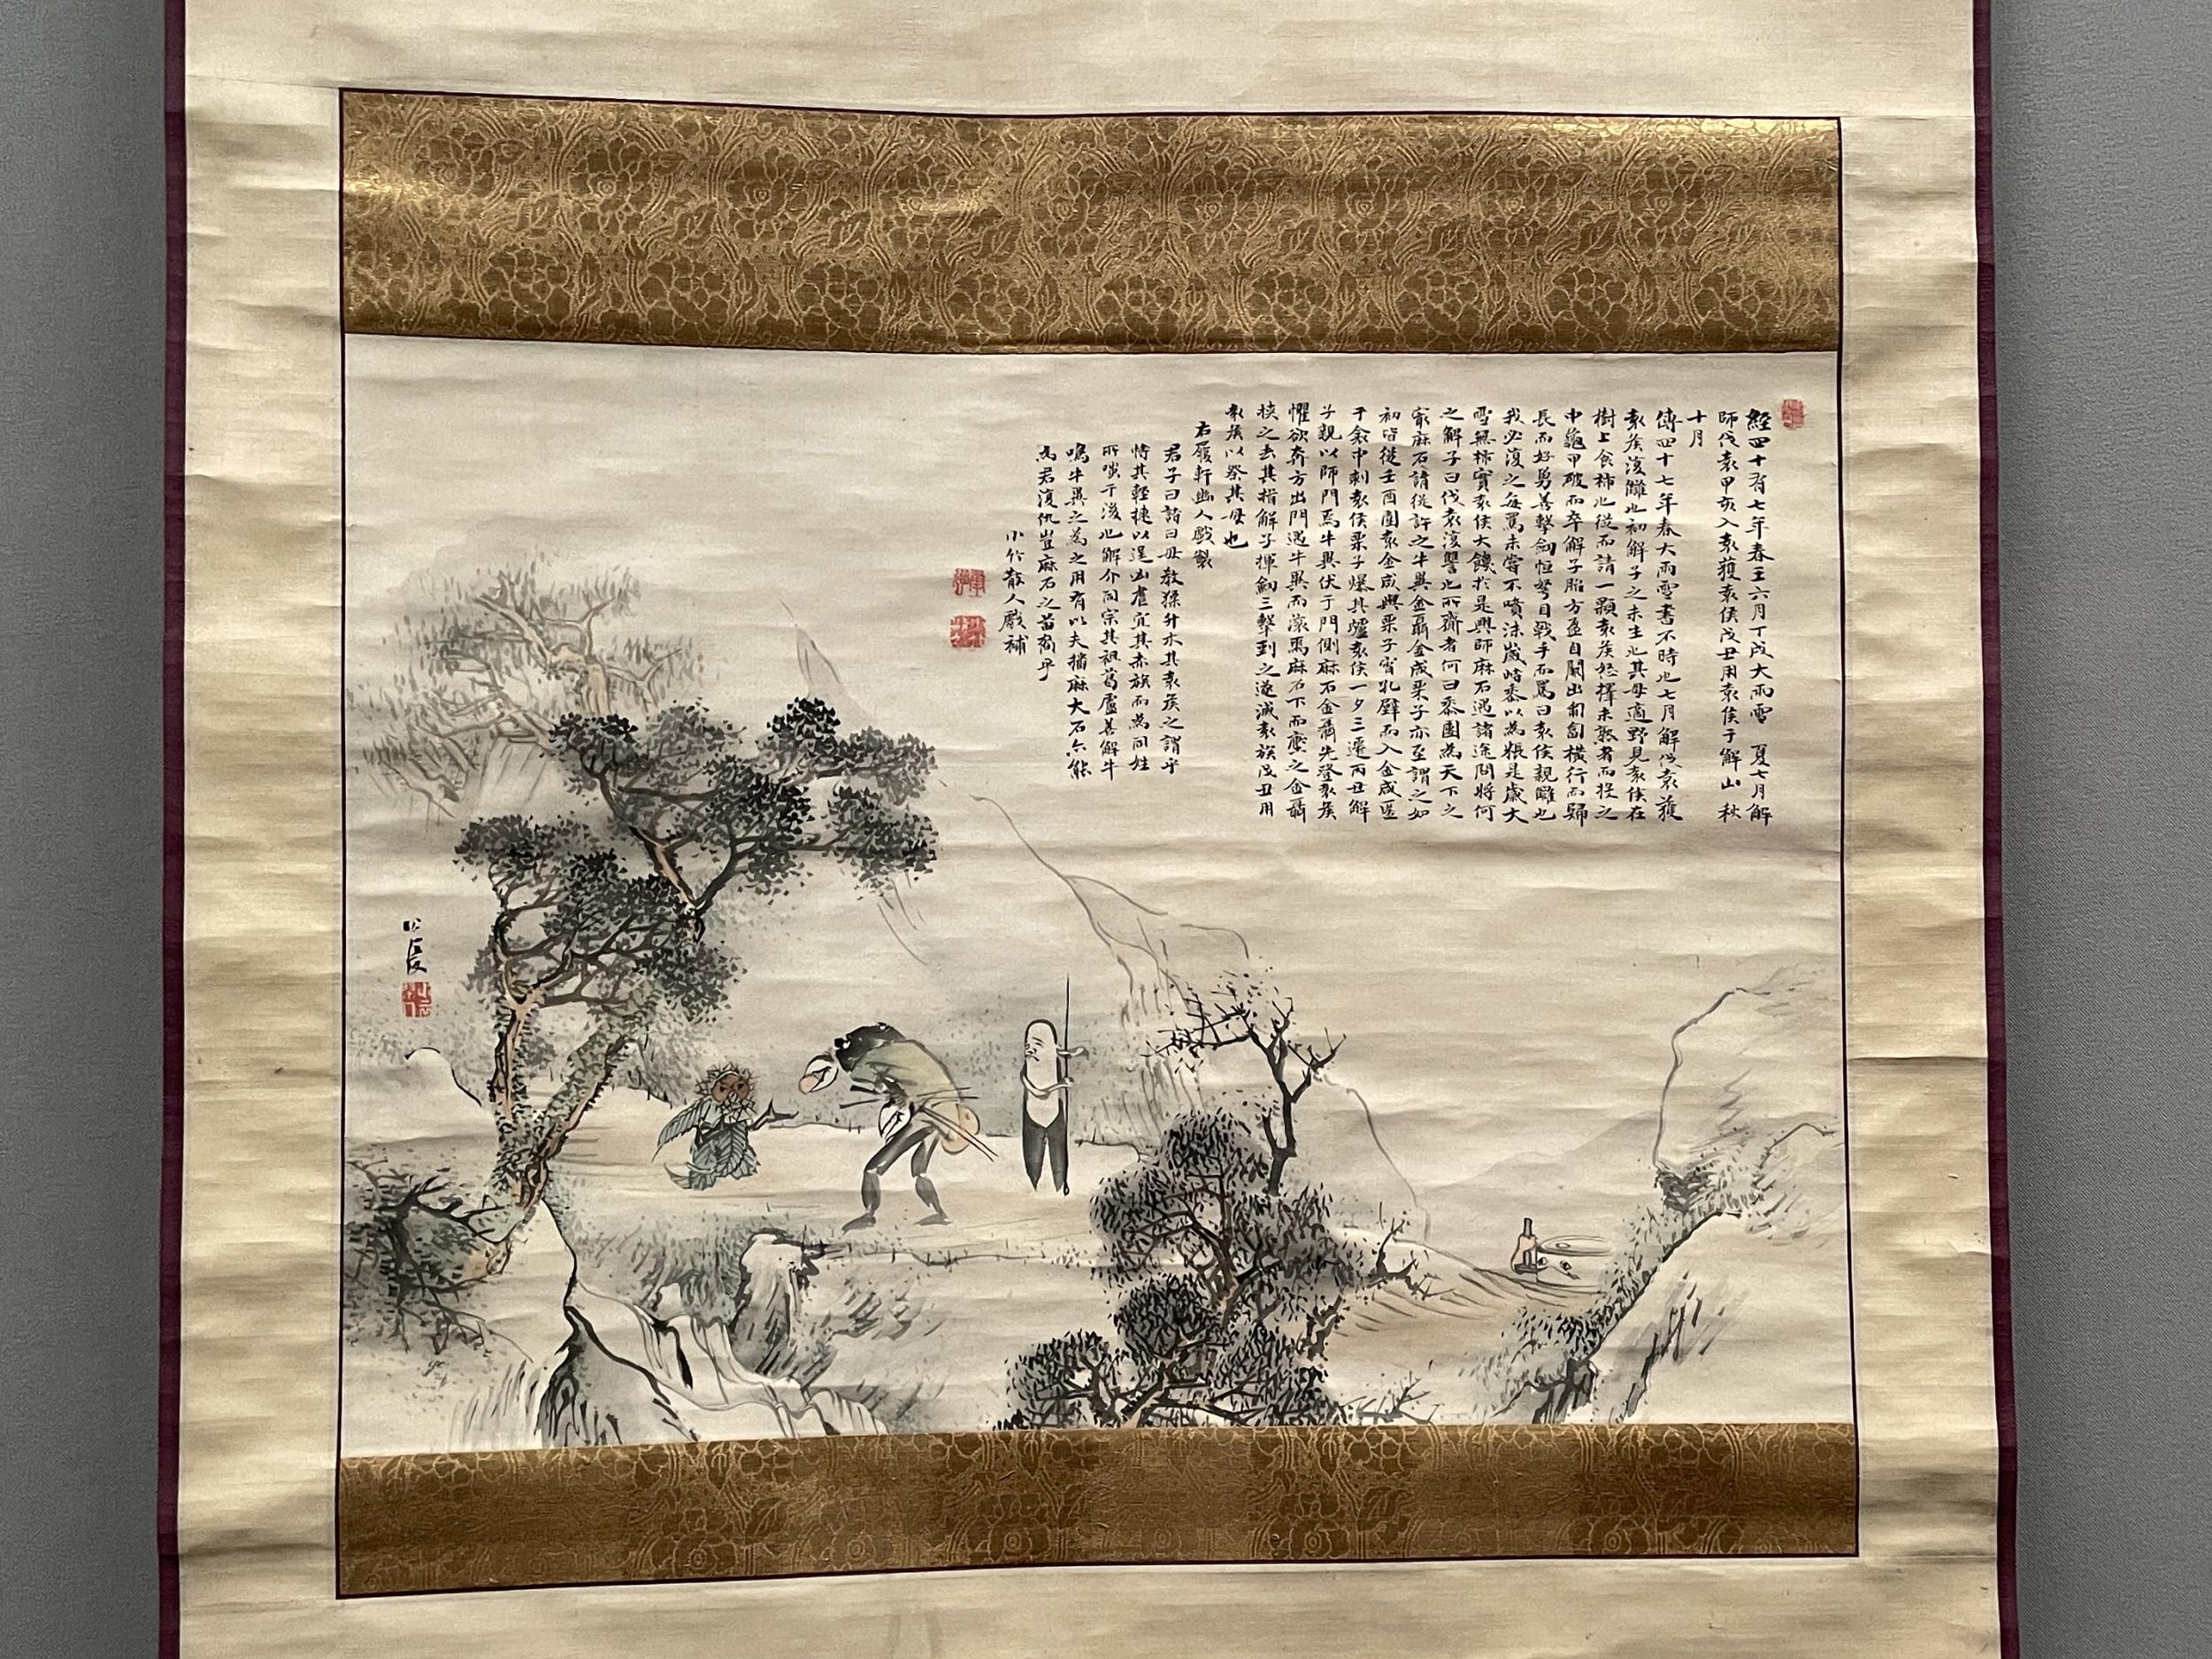 經四十有七年春王六月丁戌大雨雪　夏七月解
師伐袁甲亥入袁獲袁侯戊丑用袁侯于解山　秋
十月
傳四十七年春大雨雪書不時也七月解伐袁獲
袁侯復讎也初解子之未生也其母適野見袁侯在
樹上食柿也從而請一顆袁侯怒擇未熟者而投之
中龜甲破而卒解子胎方盈自闢出匍匐橫行而歸
長而好勇善擊劍恒弩目戟手而罵曰袁侯親讎也
我必復之每罵未嘗不噴沫歲峙黍以為粻是歲大
雪無柿實袁侯大饑於是興師麻石遇諸途問將何
之解子曰伐袁復讐也所齎者何曰黍團為天下之
家麻石請從許之牛異金聶金成栗子亦至謂之如
初皆從壬酉圍袁金成與栗子宵孔壁而入金成匿
于衾中刺袁侯栗子爆其爐袁侯一夕三遷丙丑解
子親以師門焉牛異伏于門側麻石金聶先登袁侯
懼欲奔方出門遇牛異而滾焉麻石下而壓之金聶
挾之去其指解子揮劍三擊到之遂滅袁族戊丑用
袁侯以祭其母也
右履軒幽人戲製
君子曰詩曰毋教猱升木其袁侯之謂乎
恃其輕捷以逞凶虐宜其赤族而為同姓
所嗤于後也解介同宗其祖葛盧善解牛
鳴牛異之為之用有以夫獨麻大石亦能
為君復仇豈麻石之苗裔乎
小竹散人戲補